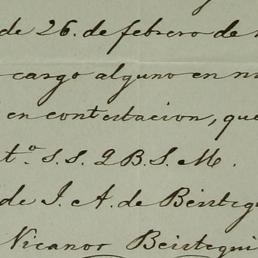 de 26. de febrero de
cargo alguno en
en contestacion, que
t.º S. S. Q B. S. M.
de J. A. de Beisteg
Nicanor Beistegui